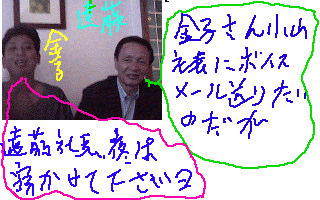 遠藤
金子
金子さん小山
社長にボイス
メール送りたい
のだが
遠藤社長、夜は
寝かせて下さいヨ